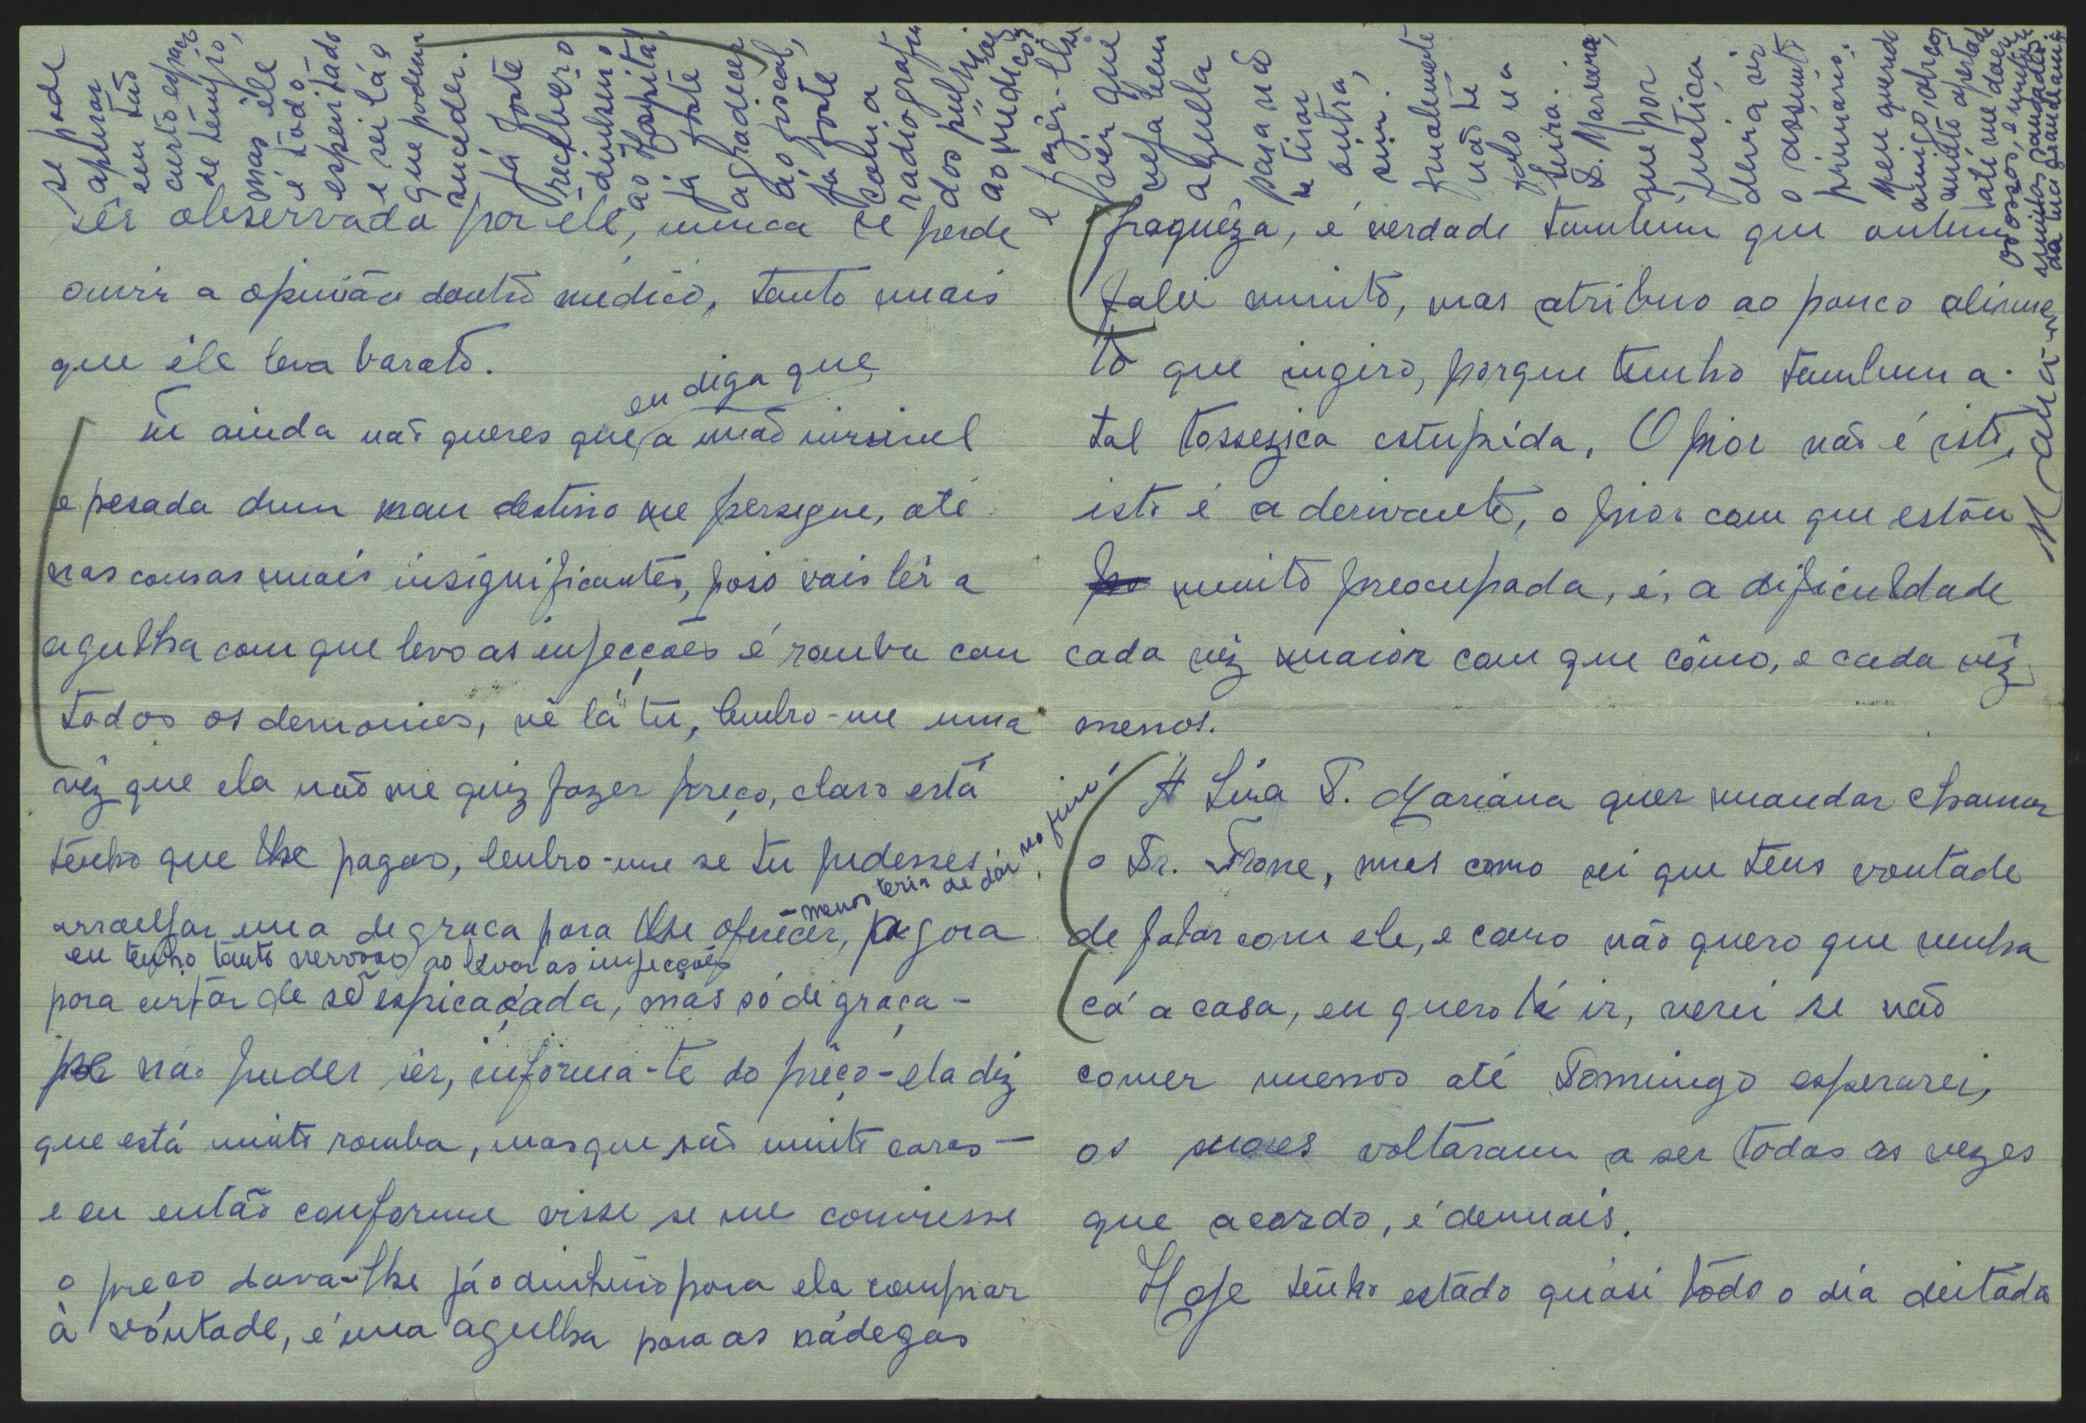 sêr observada por êle, nunca se perde
ouvir a opinião doutro médico, tanto mais
que êle leva barato.
Se ainda não queres que eu diga que a mão invisivel
e pesada dum mau destino me persegue, até
nas cousas mais insignificantes, poso vais lêr a
agulha com que levo as injecções é romba com
todos os demonios, vê lá tu, lembro-me uma
vêz que ela não me quiz fazer preço, claro está
tenho que lhe pagar, lembro-me se tu pudesses
arranjar uma de graça para lhe oferecêr, - menos teria de dôr no fim! agora
eu tenho tanto nervoso ao levar as injecções
para evitar de sêr espicaçada, mas só de graça -
se não puder sêr, informa-te do prêço - ela diz
que está muito romba, mas que são muito caras -
e eu então conforme visse se me conviesse
o preço dava-lhe já o dinheiro para ela comprar
à vontade, é uma agulha para as nádegas
fraquêza, é verdade tambem que ontem
falei muito, mas atribuo ao pouco alimen-
to que ingiro, porque tenho tambem a
tal tossezica estupida. O pior não é isto,
isto é a derivante, o pior com que estou
muito preocupada, é, a dificuldade
cada vêz maior com que cômo, e cada vêz
menos.
A Sr.a D. Mariana quer mandar chamar
o Dr. , mas como sei que tens vontade
de falar com ele, e como não quero que venha
cá a casa, eu quero lá ir, verei se não
comer menos até Domingo esperarei,
os voltaram a ser todas as vezes
que acordo, é demais.
Hoje tenho estado quási todo o dia deitada
se pode
apurar
eu tão
curto espaço
de tempo,
mas êle
é todo
espevitado
e sei lá o
que podem
suceder.
Já foste
recebêr o
dinheiro
ao Hospital,
já foste
agradecer
ao fiscal,
já foste
com a
radiografia
dos pulmões
ao médico
e fazêr-lhe
vêr que
veja bem
aquela
para não
se tirar
outra,
sim.
finalmente
não te
falo na
D. Mariana,
que por
justiça
devia sêr
o assunto
primário.
Meu querido
amigo, abraços
muito apertados
até me doer
os ossos, e muitas,
muitas saudades
da tua